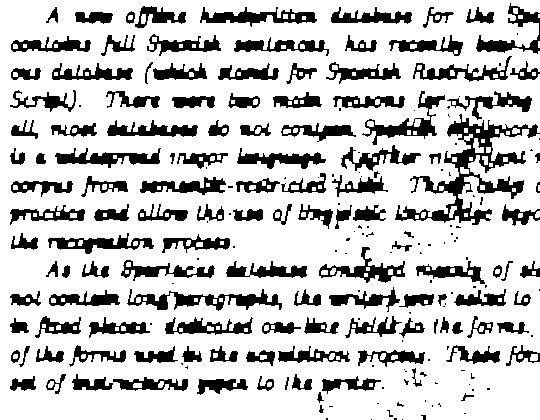 A new offline handwritten database for the Spa
contains full Spanish sentences, has recently been
ous database (which stands for Spanish Restricted do
Script). There were two main reasons for creating
all, most databases do not contain Spanish sentences,
is a widespread major language. Another important
corpus from semantic-restricted tasks. These tasks
practice and allow the use of linguistic knowledge beyo
the recognition process.
As the Spartacus database consisted mainly of
not contain long paragraphs, the writers were asked to
in fixed places: dedicated one-line fields in the forms.
of the forms used in the acquisition process. These for
set of instructions given to the writer.